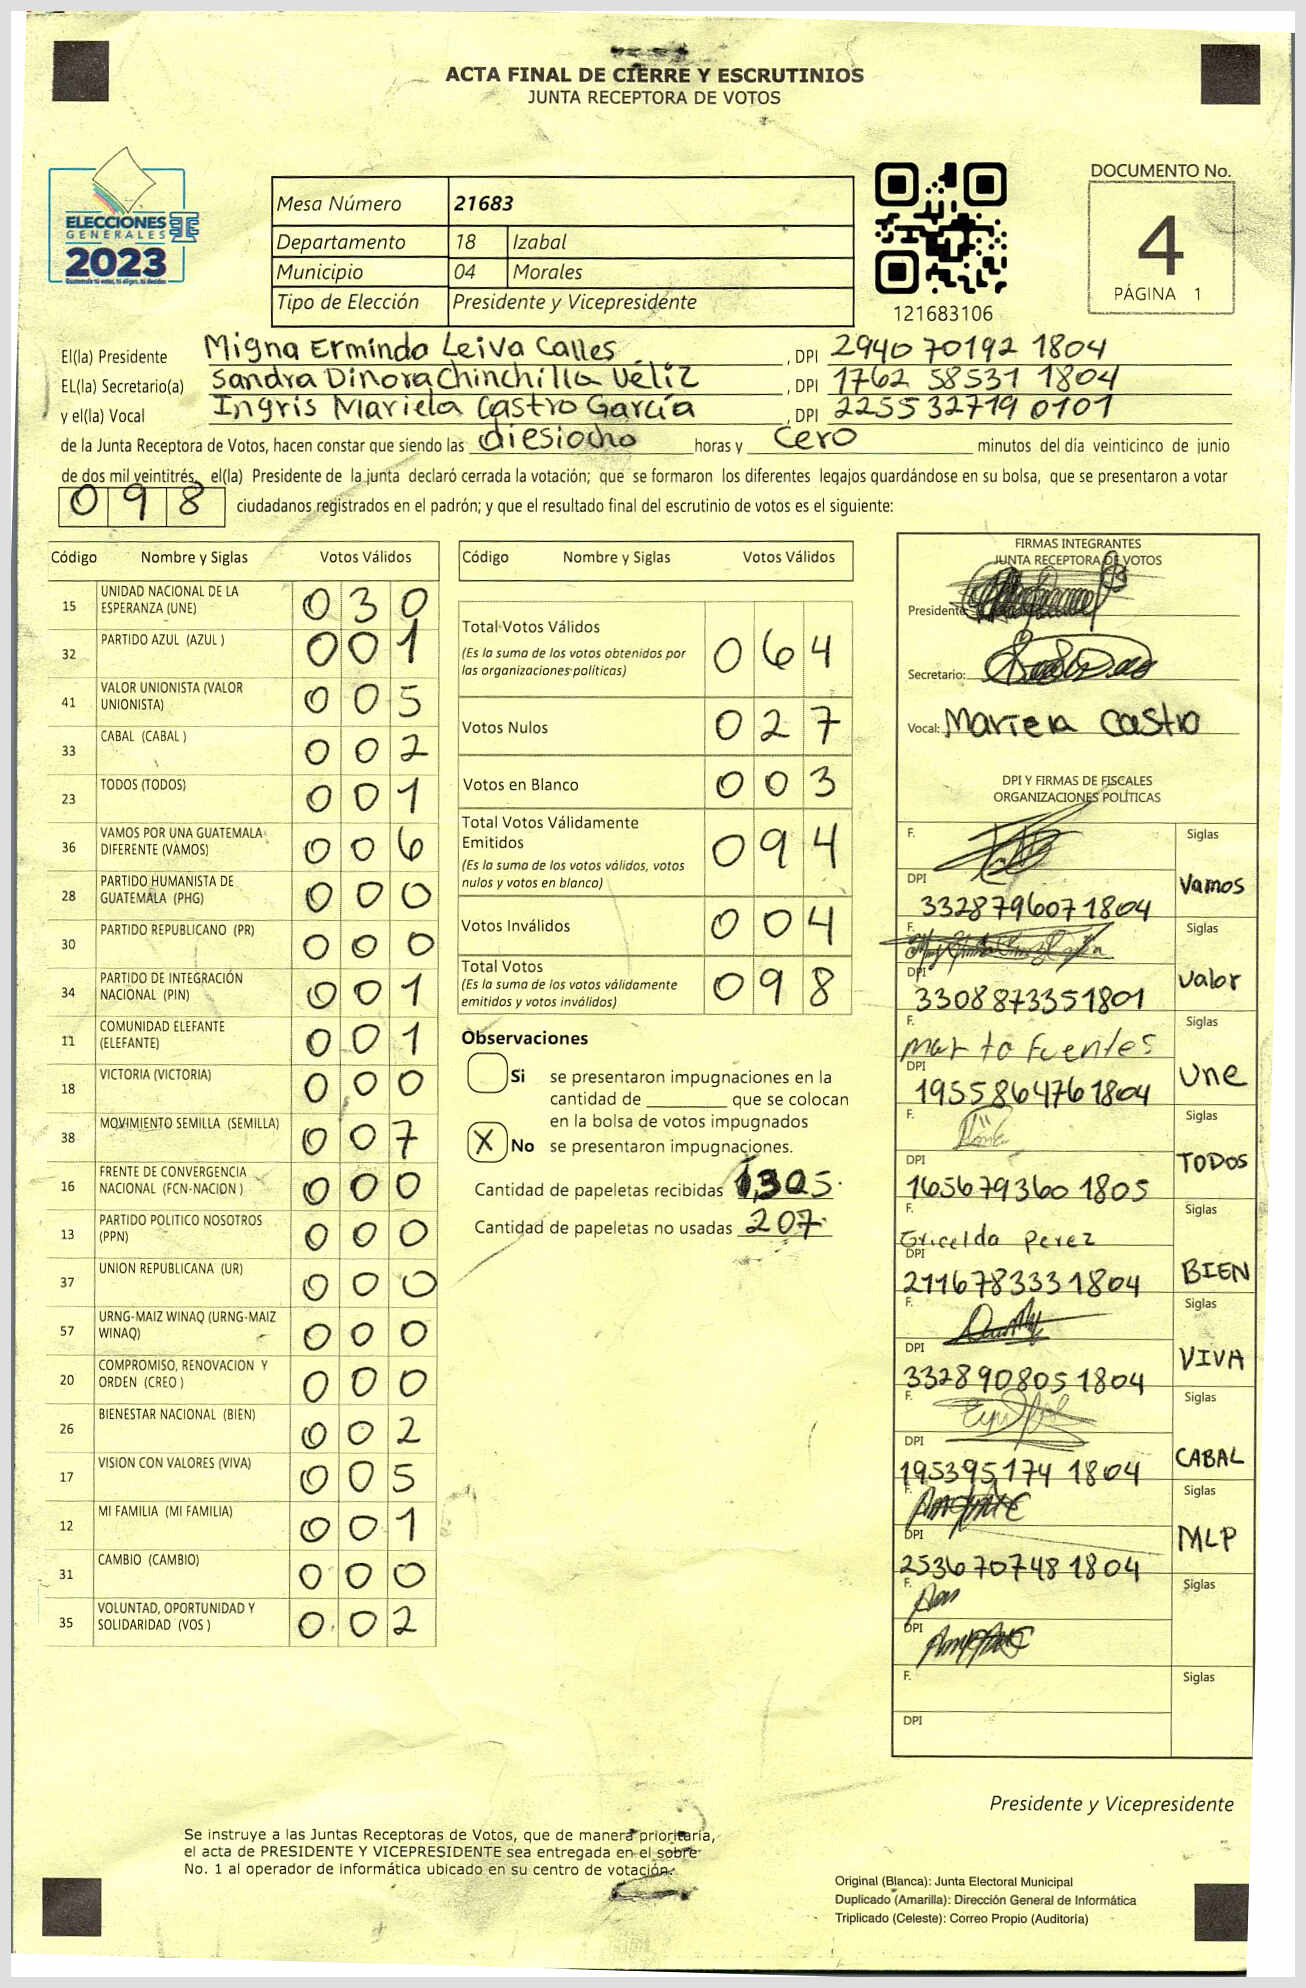 ACTA FINAL DE CIERRE Y ESCRUTINIOS
JUNTA RECEPTORA DE VOTOS
ELECCIONES
GENERALES
2023
Mesa Número 21683
Departamento 18 Izabal
Municipio 04 Morales
Tipo de Elección Presidente y Vicepresidente
121683106
DOCUMENTO No.
4
PÁGINA 1
El(la) Presidente Migna Ermindo Leiva Calles , DPI 2940 70192 1804
EL(la) Secretario(a) Sandra Dinora Chinchilla Veliz , DPI 1762 58531 1804
y el(la) Vocal Ingris Mariela Castro García , DPI 2255 32719 0101
de la Junta Receptora de Votos, hacen constar que siendo las diesiocho horas y cero minutos del día veinticinco de junio
de dos mil veintitrés, el(la) Presidente de la junta declaró cerrada la votación; que se formaron los diferentes legajos guardándose en su bolsa, que se presentaron a votar
098 ciudadanos registrados en el padrón; y que el resultado final del escrutinio de votos es el siguiente:
Código Nombre y Siglas Votos Válidos
15 UNIDAD NACIONAL DE LA ESPERANZA (UNE) 030
32 PARTIDO AZUL (AZUL ) 001
41 VALOR UNIONISTA (VALOR UNIONISTA) 005
33 CABAL (CABAL ) 002
23 TODOS (TODOS) 001
36 VAMOS POR UNA GUATEMALA DIFERENTE (VAMOS) 006
28 PARTIDO HUMANISTA DE GUATEMALA (PHG) 000
30 PARTIDO REPUBLICANO (PR) 000
34 PARTIDO DE INTEGRACIÓN NACIONAL (PIN) 001
11 COMUNIDAD ELEFANTE (ELEFANTE) 001
18 VICTORIA (VICTORIA) 000
38 MOVIMIENTO SEMILLA (SEMILLA) 007
16 FRENTE DE CONVERGENCIA NACIONAL (FCN-NACION ) 000
13 PARTIDO POLITICO NOSOTROS (PPN) 000
37 UNION REPUBLICANA (UR) 000
57 URNG-MAIZ WINAQ (URNG-MAIZ WINAQ) 000
20 COMPROMISO, RENOVACION Y ORDEN (CREO ) 000
26 BIENESTAR NACIONAL (BIEN) 002
17 VISION CON VALORES (VIVA) 005
12 MI FAMILIA (MI FAMILIA) 001
31 CAMBIO (CAMBIO) 000
35 VOLUNTAD, OPORTUNIDAD Y SOLIDARIDAD (VOS ) 002
Código Nombre y Siglas Votos Válidos
Total Votos Válidos 064
(Es la suma de los votos obtenidos por
las organizaciones políticas)
Votos Nulos 027
Votos en Blanco 003
Total Votos Válidamente
Emitidos 094
(Es la suma de los votos válidos, votos
nulos y votos en blanco)
Votos Inválidos 004
Total Votos 098
(Es la suma de los votos válidamente
emitidos y votos inválidos)
Observaciones
Si se presentaron impugnaciones en la
cantidad de ________ que se colocan
en la bolsa de votos impugnados
X No se presentaron impugnaciones.
Cantidad de papeletas recibidas 1,305.
Cantidad de papeletas no usadas 207.
FIRMAS INTEGRANTES
JUNTA RECEPTORA DE VOTOS
Presidente:
Secretario:
Vocal: Mariela Castro
DPI Y FIRMAS DE FISCALES
ORGANIZACIONES POLÍTICAS
F. Siglas
DPI 332879607 1804 Vamos
F. Siglas
DPI 330887335 1801 Valor
F. Marta Fuentes Siglas
DPI 195586476 1804 Une
F. Siglas
DPI 165679360 1805 TODOS
F. Gricelda Perez Siglas
DPI 211678333 1804 BIEN
F. Siglas
DPI 332890805 1804 VIVA
F. Siglas
DPI 195395174 1804 CABAL
F. Siglas
DPI 253670748 1804 MLP
F. Siglas
DPI
F. Siglas
DPI
Presidente y Vicepresidente
Se instruye a las Juntas Receptoras de Votos, que de manera prioritaria,
el acta de PRESIDENTE Y VICEPRESIDENTE sea entregada en el sobre
No. 1 al operador de informática ubicado en su centro de votación.
Original (Blanca): Junta Electoral Municipal
Duplicado (Amarilla): Dirección General de Informática
Triplicado (Celeste): Correo Propio (Auditoría)